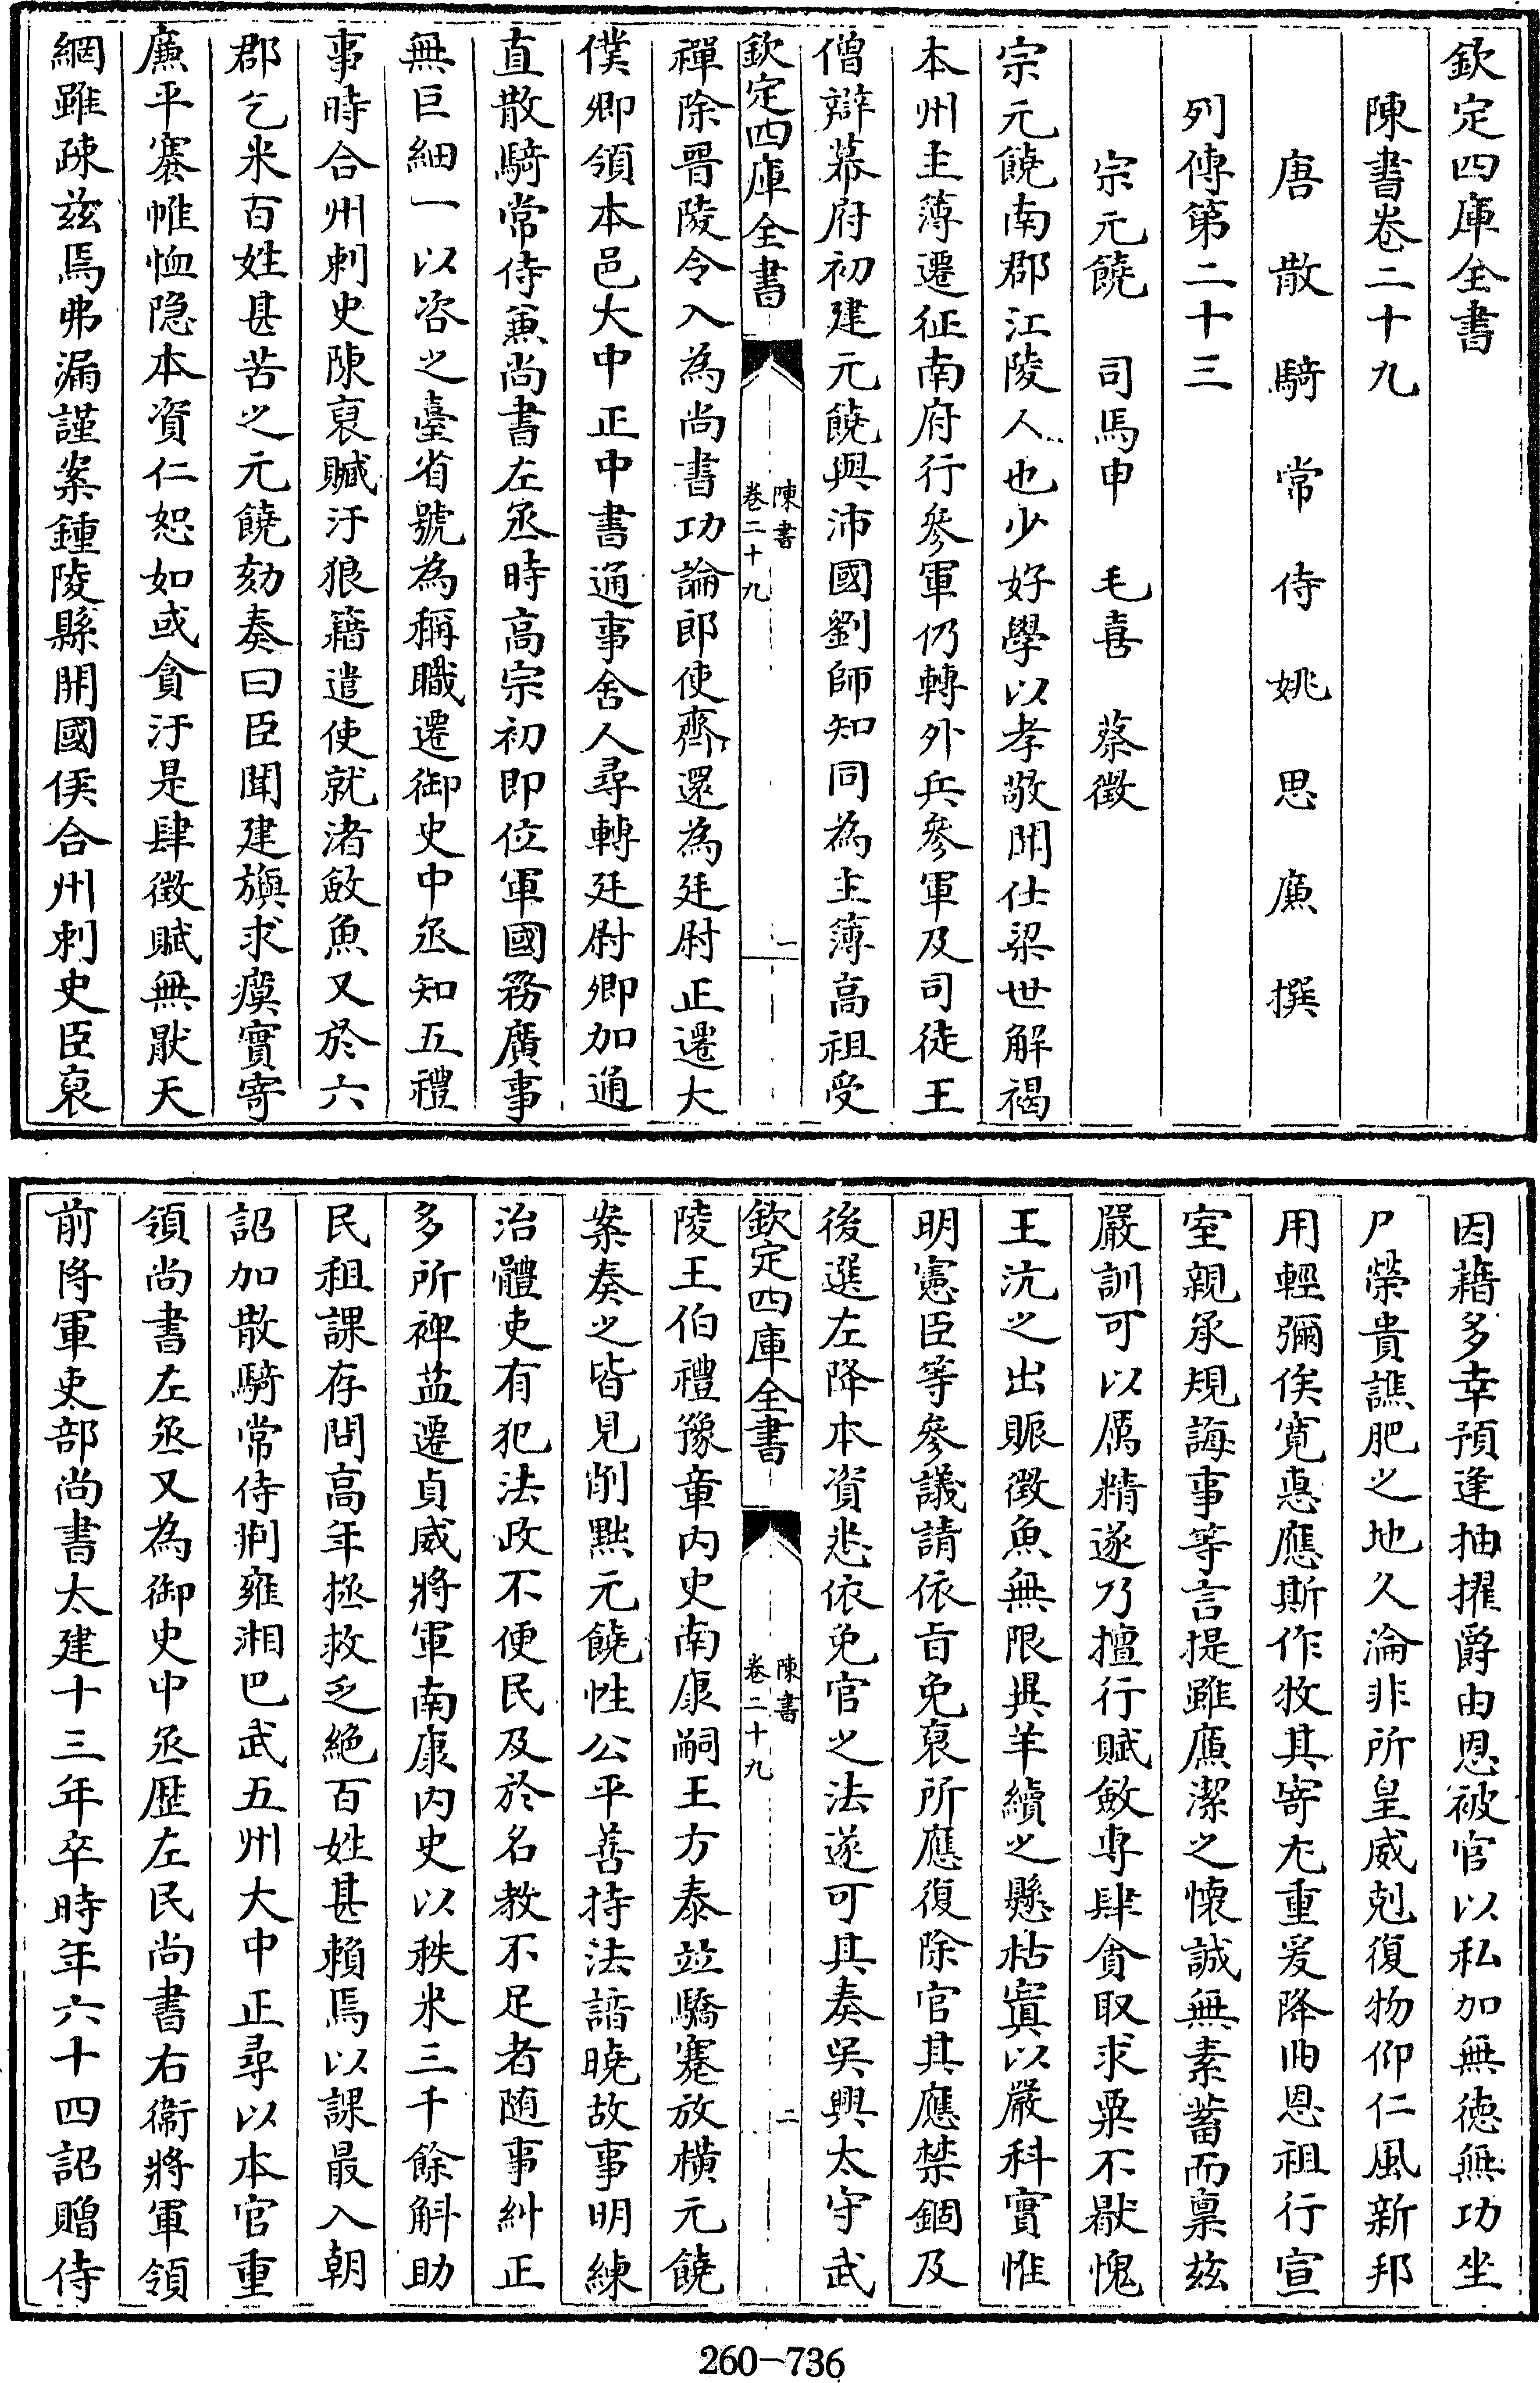 欽定四庫全書
陳書卷二十九
唐散騎常侍姚思廉撰
列傳第二十三
宗元饒　司馬申　毛喜　蔡徵
宗元饒南郡江陵人也少好學以孝敬聞仕梁世解褐
本州主簿遷征南府行參軍仍轉外兵參軍及司徒王
僧辯幕府初建元饒與沛國劉師知同為主簿高祖受
欽定四庫全書
陳書
卷二十九
一
禪除晉陵令入為尚書功論郎使齊還為廷尉正遷大
僕卿領本邑大中正中書通事舍人尋轉廷尉卿加通
直散騎常侍兼尚書左丞時高宗初即位軍國務廣事
無巨細一以咨之臺省號為稱職遷御史中丞知五禮
事時合州刺史陳裒贓汙狼籍遣使就渚斂魚又於六
郡乞米百姓甚苦之元饒劾奏曰臣聞建旟求瘼實寄
廉平褰帷恤隐本資仁恕如或貪汙是肆徵賦無厭天
網雖疎茲焉弗漏謹案鍾陵縣開國侯合州刺史臣裒
因藉多幸預逢抽擢爵由恩被官以私加無徳無功坐
尸榮貴譙肥之地久淪非所皇威剋復物仰仁風新邦
用輕彌俟寛惠應斯作牧其寄尤重爰降曲恩祖行宣
室親承規誨事等言提雖㢘潔之懷誠無素蓄而稟兹
嚴訓可以厲精遂乃擅行賦斂專肆貪取求粟不厭愧
王沆之出賑徵魚無限異羊續之懸枯寘以嚴科實惟
明憲臣等參議請依旨免裒所應復除官其應禁錮及
後選左降本資悉依免官之法遂可其奏吳興太守武
欽定四庫全書
陳書
卷二十九
二
陵王伯禮豫章內史南康嗣王方泰竝驕蹇放橫元饒
案奏之皆見削黜元饒性公平善持法諳曉故事明練
治體吏有犯法政不便民及於名教不足者随事糾正
多所裨益遷貞威將軍南康内史以秩米三千餘斛助
民租課存問高年拯救乏絶百姓甚賴焉以課最入朝
詔加散騎常侍荆雍湘巴武五州大中正尋以本官重
領尚書左丞又為御史中丞歴左民尚書右衞將軍領
前將軍吏部尚書太建十三年卒時年六十四詔贈侍
260-736